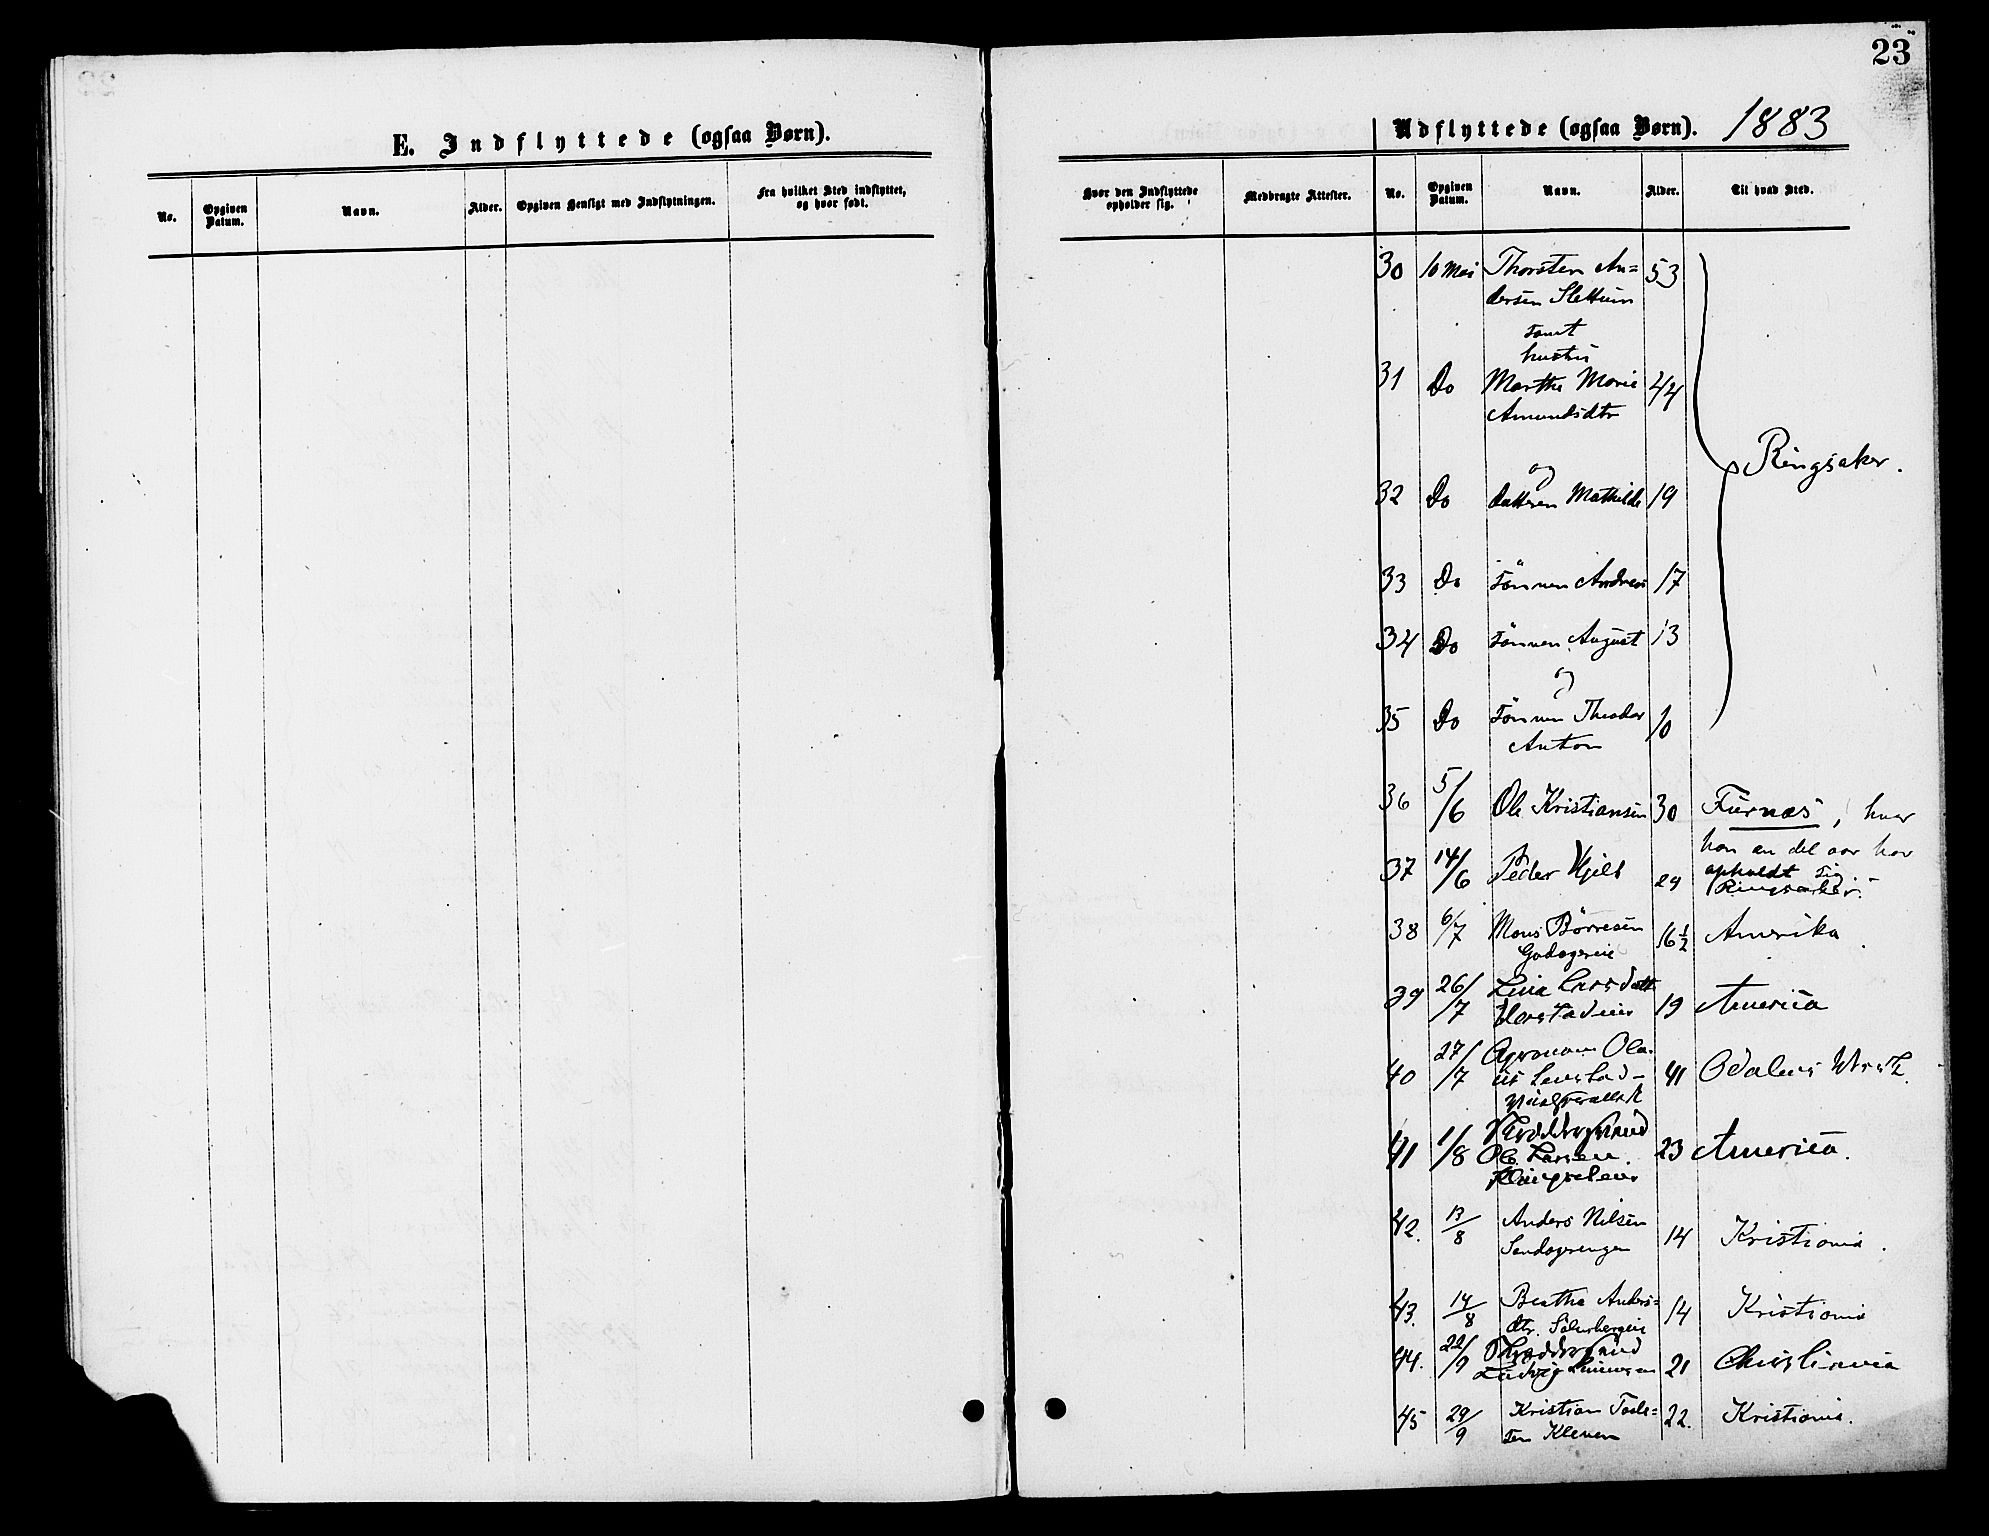 23
E. Indflyttede (ogsaa Børn).
No.
Opgiven Datum.
Navn.
Alder.
Opgiven Hensigt med Indflytningen.
Fra hvilket Sted indflyttet, og hvor født.
Udflyttede (ogsaa Børn). 1883
Hvor den Indflyttede opholder sig.
Medbragte Attester.
No.
Opgiven Datum.
Navn.
Alder.
Til hvad Sted.
30 10 Mai Thorsten An= 53
dersen Slettum
samt
hustru
31 Do Marthe Marie 44
Amundsdtr
Ringsaker.
og
32 Do datteren Mathilde 19
33 Do sönnen Andreas 17
34 Do sönnen August 13
og
35 Do sönnen Theodor 10
Anton
36 5/6 Ole Kristiansen 30 Furnæs, hvor
han en del aar har
opholdt sig.
37 14/6 Peder Hjelt 24 Ringsaker.
38 6/7 Mons Börresen 16½ Amerika
39 26/7 Lina Larsdatt 19 America
40 27/7 Agronom Ola- 41 Odalens Værk
41 1/8 23 America.
Ole Larsen
42. 13/8 Anders Nilsen 14 Kristiania.
43. 14/8 Beathe Anders= 14 Kristiania
dtr.
44. 22/9 21 Christiania
Ludvig
45 29/9 Kristian 22. Kristiania.
sen Kleven